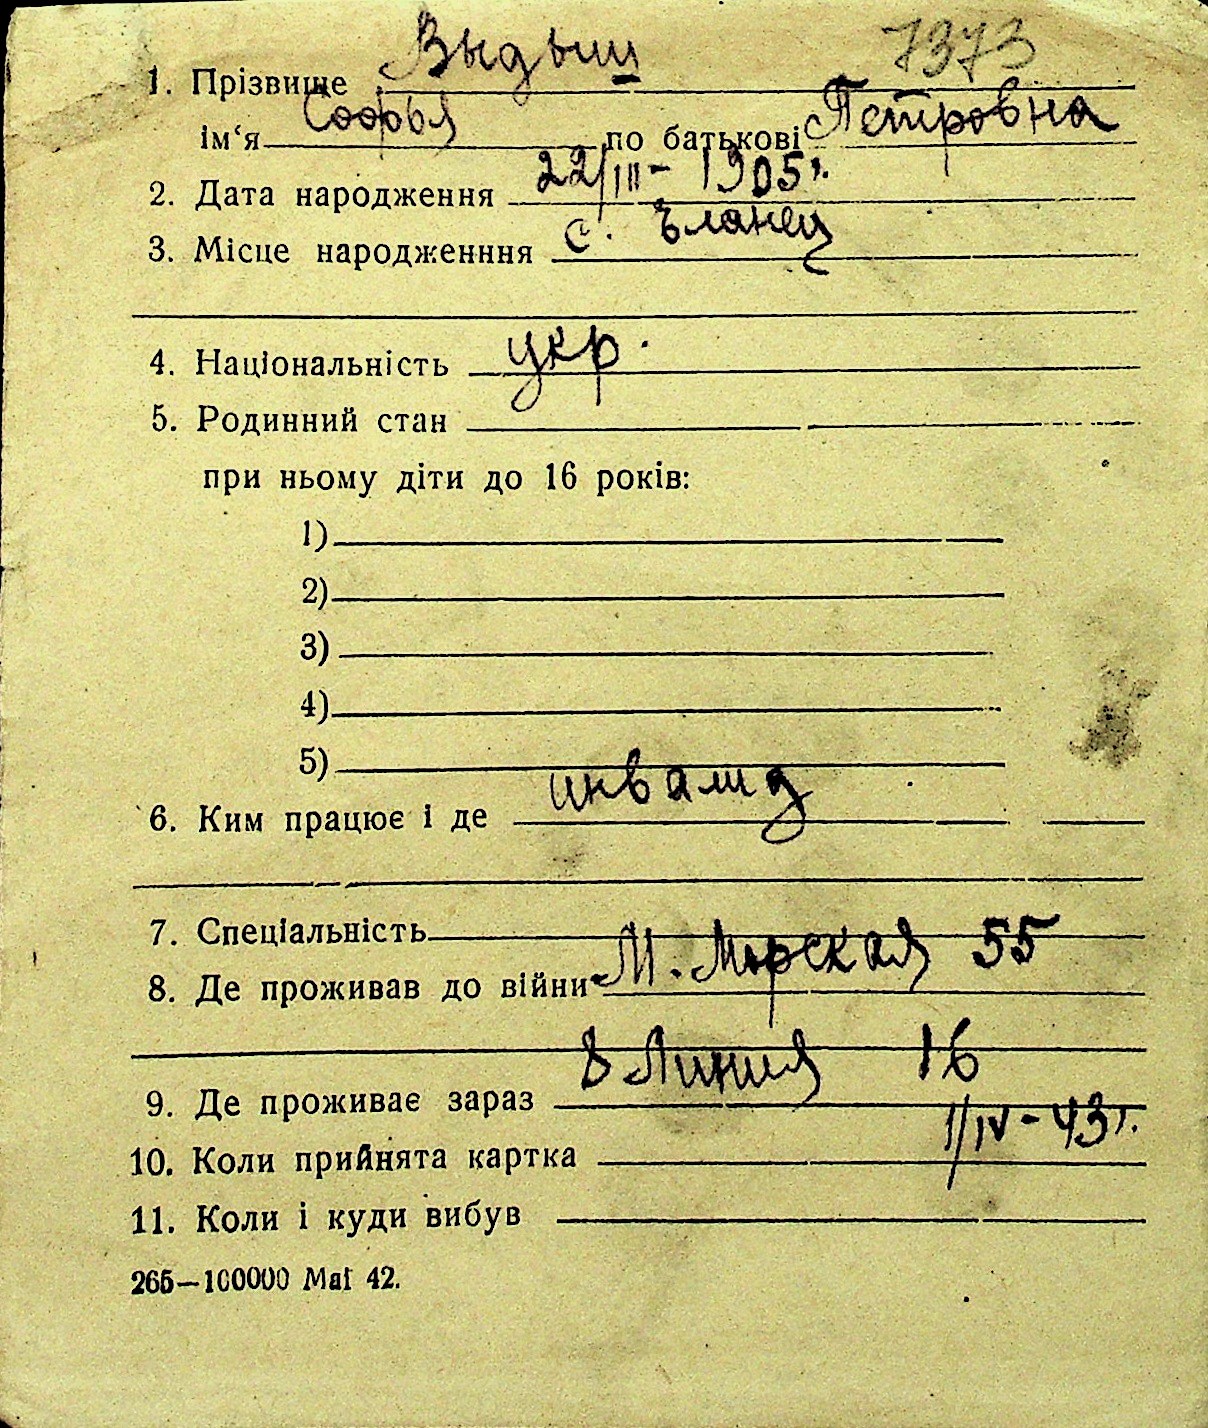 7373
1. Прізвище Выдыш
ім‘я Софья по батькові Петровна
2. Дата народження 22/III – 1905 г.
3. Місце народженння с. Еланец
4. Національність укр.
5. Родинний стан
при ньому діти до 16 років:
1)
2)
3)
4)
5)
6. Ким працює і де инвалид
7. Спеціальність
8. Де проживав до війни М. Морская 55
9. Де проживає зараз 8 Линия 16
10. Коли прийнята картка 1/IV – 43 г.
11. Коли і куди вибув
265—100000 Маі 42.